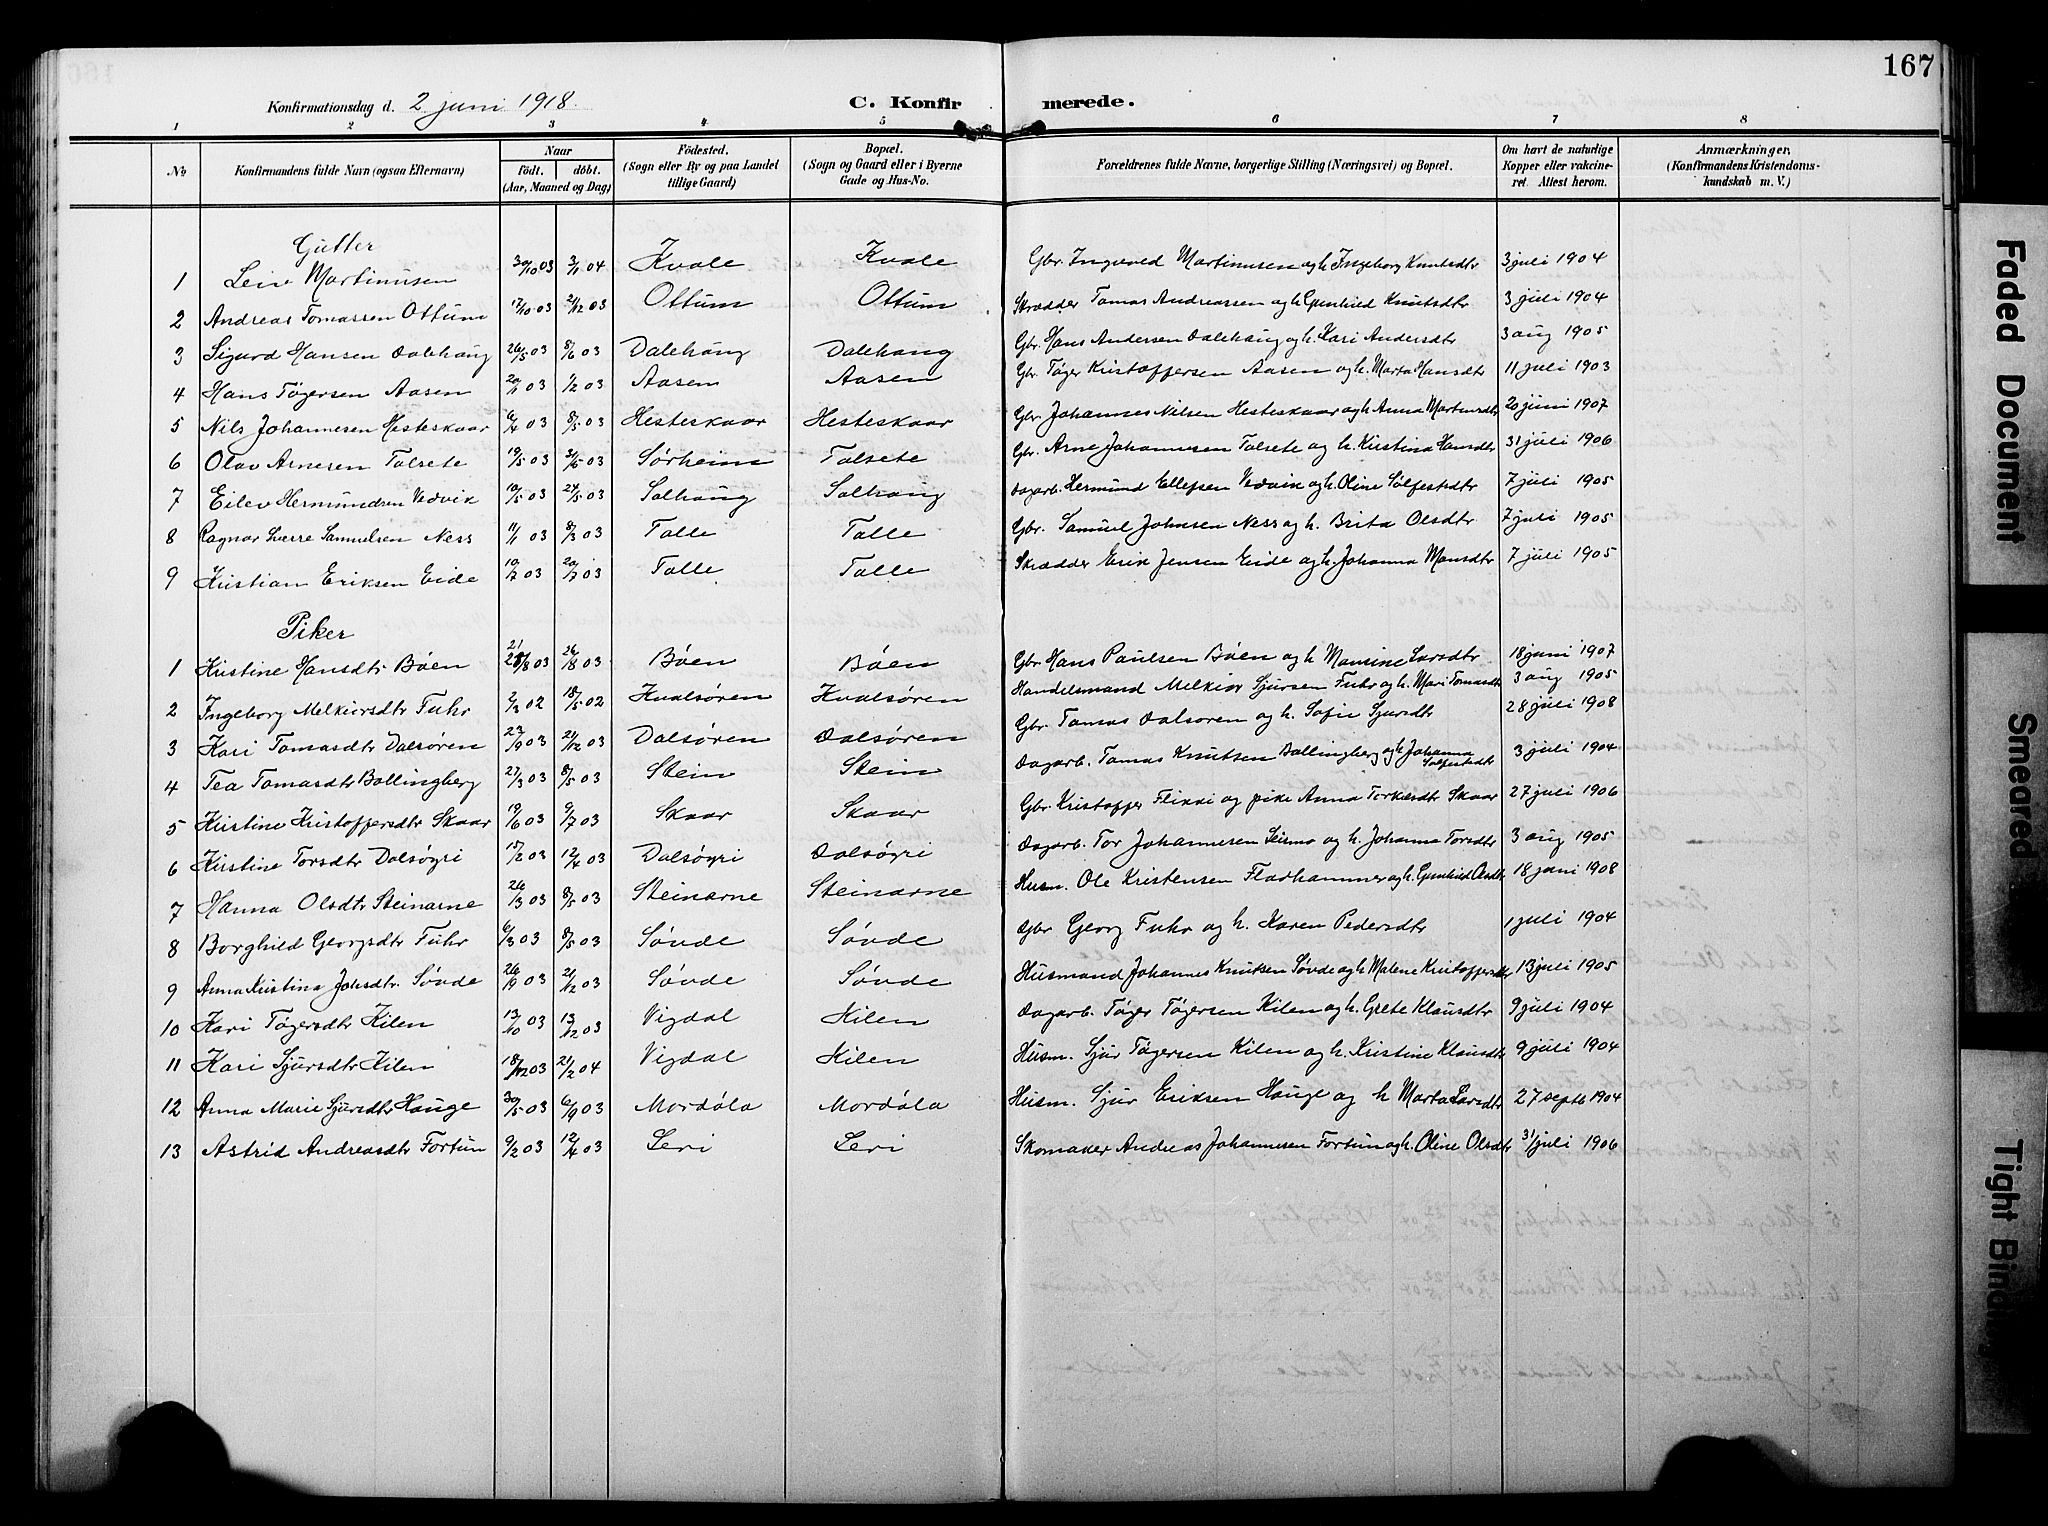 167
Konfirmationsdag d. 2 juni 1918.
C. Konfirmerede.
1 2 3 4 5 6 7 8
No
Konfirmandens fulde Navn (ogsaa Efternavn)
Naar
födt. döbt.
(Aar, Maaned og Dag)
Födested.
(Sogn eller By og paa Landet
tillige Gaard)
Bopæl.
(Sogn og Gaard eller i Byerne
Gade og Hus-No.
Forældrenes fulde Navne, borgerlige Stilling (Næringsvei) og Bopæl.
Om havt de naturlige
Kopper eller vakcine-
ret. Attest herom.
Anmærkninger,
(Konfirmandens Kristendoms-
kundskab m. V.)
Gutter
1 Leiv Martinusen 30/10 03 3/1 04 Kvale Kvale Gbr. Ingvald Martinusen og h. Ingeborg Knutsdtr 3 juli 1904
2 Andreas Tomassen Ottum 17/10 03 21/12 03 Ottum Ottum Skrædder Tomas Andreassen og h. Gunhild Knutsdtr 3 juli 1904
3 Sigurd Hansen Dalehaug 26/5 03 8/6 03 Dalehaug Dalehaug Gbr. Hans Andersen Dalehaug og h. Kari Andersdtr 3 aug 1905
4 Hans Tøgersen Aasen 20/1 03 1/2 03 Aasen Aasen Gbr. Tøger Kristoffersen Aasen og h. Marta Hansdtr 11 juli 1903
5 Nils Johannesen Hesteskaar 6/4 03 8/5 03 Hesteskaar Hesteskaar Gbr. Johannes Nilsen Hesteskaar og h. Anna Martinsdtr 20 juni 1907
6 Olav Arnesen Talsete 19/5 03 31/5 03 Sørheim Talsete Gbr. Arne Johannesen Talsete og h. Kristina Hansdtr 31 juli 1906
7 Eilev Hermundsen Vedvik 10/5 03 24/5 03 Solhaug Solhaug Dagarb. Hermund Ellefsen Vedvik og h. Oline Sølfestsdtr 7 juli 1905
8 Ragnar Sverre Samuelsen Ness 11/1 03 8/3 03 Talle Talle Gbr. Samuel Johnsen Ness og h. Brita Olsdtr 7 juli 1905
9 Kristian Eriksen Eide 10/7 03 20/7 03 Talle Talle Skrædder Erik Jensen Eide og h. Johanna Monsdtr 7 juli 1905
Piker
1 Kristine Hansdtr Bøen 21/8 03 26/8 03 Bøen Bøen Gbr Hans Paulsen Bøen og h. Mansine Larsdtr 18 juni 1907
2 Ingeborg Melkiorsdtr Fuhr 2/3 02 18/5 02 Kvalsøren Kvalsøren Handelsmand Melkior Sjursen Fuhr og h. Mari Tomasdtr 3 aug 1905
3 Kari Tomasdtr Dalsøren 23/9 03 21/12 03 Dalsøren Dalsøren Gbr. Tomas Dalsøren og h. Sofie Sjursdtr 28 juli 1908
4 Tea Tomasdtr Bollingberg 27/3 03 8/5 03 Stein Stein Dagarb. Tomas Knutsen Bollingberg og h. Johanna Sølfestsdtr 3 juli 1904
5 Kristine Kristoffersdtr Skaar 19/6 03 9/7 03 Skaar Skaar Gbr. Kristoffer Flikki og pike Anna Torkelsdtr Skaar 27 juli 1906
6 Kristine Torsdtr Dalsøyri 15/2 03 12/4 03 Dalsøyri Dalsøyri Dagarb. Tor Johannesen Seimo og h. Johanna Torsdtr 3 aug 1905
7 Hanna Olsdtr Steinarne 26/3 03 8/5 03 Steinarne Steinarne Husm. Ole Kristensen Fladhammer og h. Gunhild Olsdtr 18 juni 1908
8 Borghild Georgsdtr Fuhr 6/3 03 8/5 03 Søvde Søvde Gbr Georg Fuhr og h. Karen Pedersdtr 1 juli 1904
9 Anna Kristina Johsdtr. Søvde 26/9 03 21/12 03 Søvde Søvde Husmand Johannes Knutsen Søvde og h. Malene Kristoffersdtr 13 juli 1905
10 Kari Tøgersdtr Kilen 13/10 03 13/12 03 Vigdal Kilen Dagarb. Tøger Tøgersen Kilen og h. Grete Klausdtr 9 juli 1904
11 Kari Sjursdtr Kilen 18/12 03 21/2 04 Vigdal Kilen Husm. Sjur Tøgersen Kilen og h. Kristine Klausdtr 9 juli 1904
12 Anna Marie Sjursdtr Hauge 30/5 03 6/9 03 Mordøla Mordøla Husm. Sjur Eriksen Hauge og h Marta Larsdtr 27 septb 1904
13 Astrid Andreasdtr Fortun 9/2 03 12/4 03 Leri Leri Skomaker Andreas Johannesen Fortun og h. Oline Olsdtr 31 juli 1906
Faded Document
Smeared
Tight Bindin